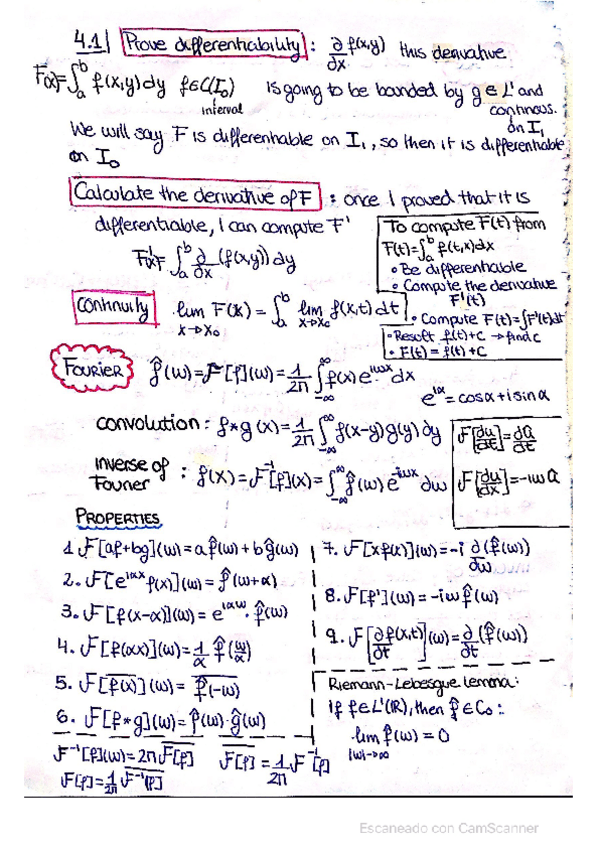 4.1 Prove differentiability : ∂/∂x f(x,y) this derivative
F(x)=∫_a^b f(x,y)dy f∈C(I₀) is going to be bounded by g∈L¹ and
interval continous.
on I₁
We will say F is differentiable on I₁, so then it is differentiable
on I₀
Calculate the derivative of F : once I proved that it is
differentiable, I can compute F'
F'(x)=∫_a^b ∂/∂x (f(x,y)) dy
To compute F(t) from
F(t)=∫_a^b f(t,x)dx
• Be differentiable
• Compute the derivative
F'(t)
• Compute F(t)=∫F'(t)dt
• Result f(t)+C → find C
• F(t) = f(t)+C
Continuity lim_{x→x₀} F(x) = ∫_a^b lim_{x→x₀} f(x,t)dt
FOURIER f̂(ω)=F[f](ω)=1/2π ∫_{-∞}^{∞} f(x)e^{iωx}dx
e^{iα}=cosα+isinα
convolution: f*g(x)=1/2π ∫_{-∞}^{∞} f(x-y)g(y)dy
F[du/dt]=dû/dt
inverse of
Fourier : f(x)=F⁻¹[f](x)=∫_{-∞}^{∞} f̂(ω)e^{-iωx}dω
F[du/dx]=-iωû
PROPERTIES
1 F[af+bg](ω)=af̂(ω)+bĝ(ω)
2. F[e^{iαx}f(x)](ω)=f̂(ω+α)
3. F[f(x-α)](ω)=e^{iαω}·f̂(ω)
4. F[f(αx)](ω)=1/α f̂(ω/α)
5. F[\overline{f(x)}](ω)=\overline{f̂(-ω)}
6. F[f*g](ω)=f̂(ω)·ĝ(ω)
F⁻¹[f](ω)=2π \overline{F[f]} \overline{F[f]}=1/2π F⁻¹[f]
F[f]=1/2π \overline{F⁻¹[f]}
7. F[xf(x)](ω)=-i ∂(f̂(ω))/∂ω
8. F[f'](ω)=-iωf̂(ω)
9. F[∂f(x,t)/∂t](ω)=∂/∂t(f̂(ω))
Riemann-Lebesgue lemma:
If f∈L¹(ℝ), then f̂∈C₀:
lim_{|ω|→∞} f̂(ω)=0
Escaneado con CamScanner